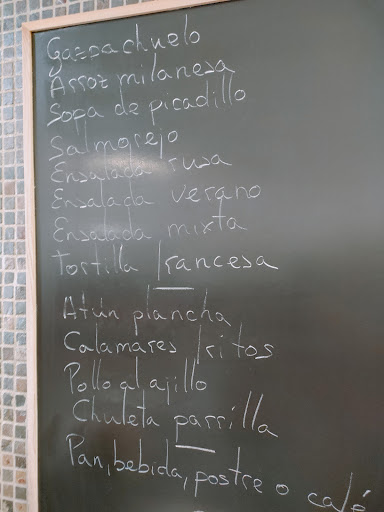 Gazpachuelo
Arroz milanesa
Sopa de picadillo
Salmorejo
Ensalada rusa
Ensalada verano
Ensalada mixta
Tortilla francesa
Atún plancha
Calamares fritos
Pollo al ajillo
Chuleta parrilla
Pan, bebida, postre o café